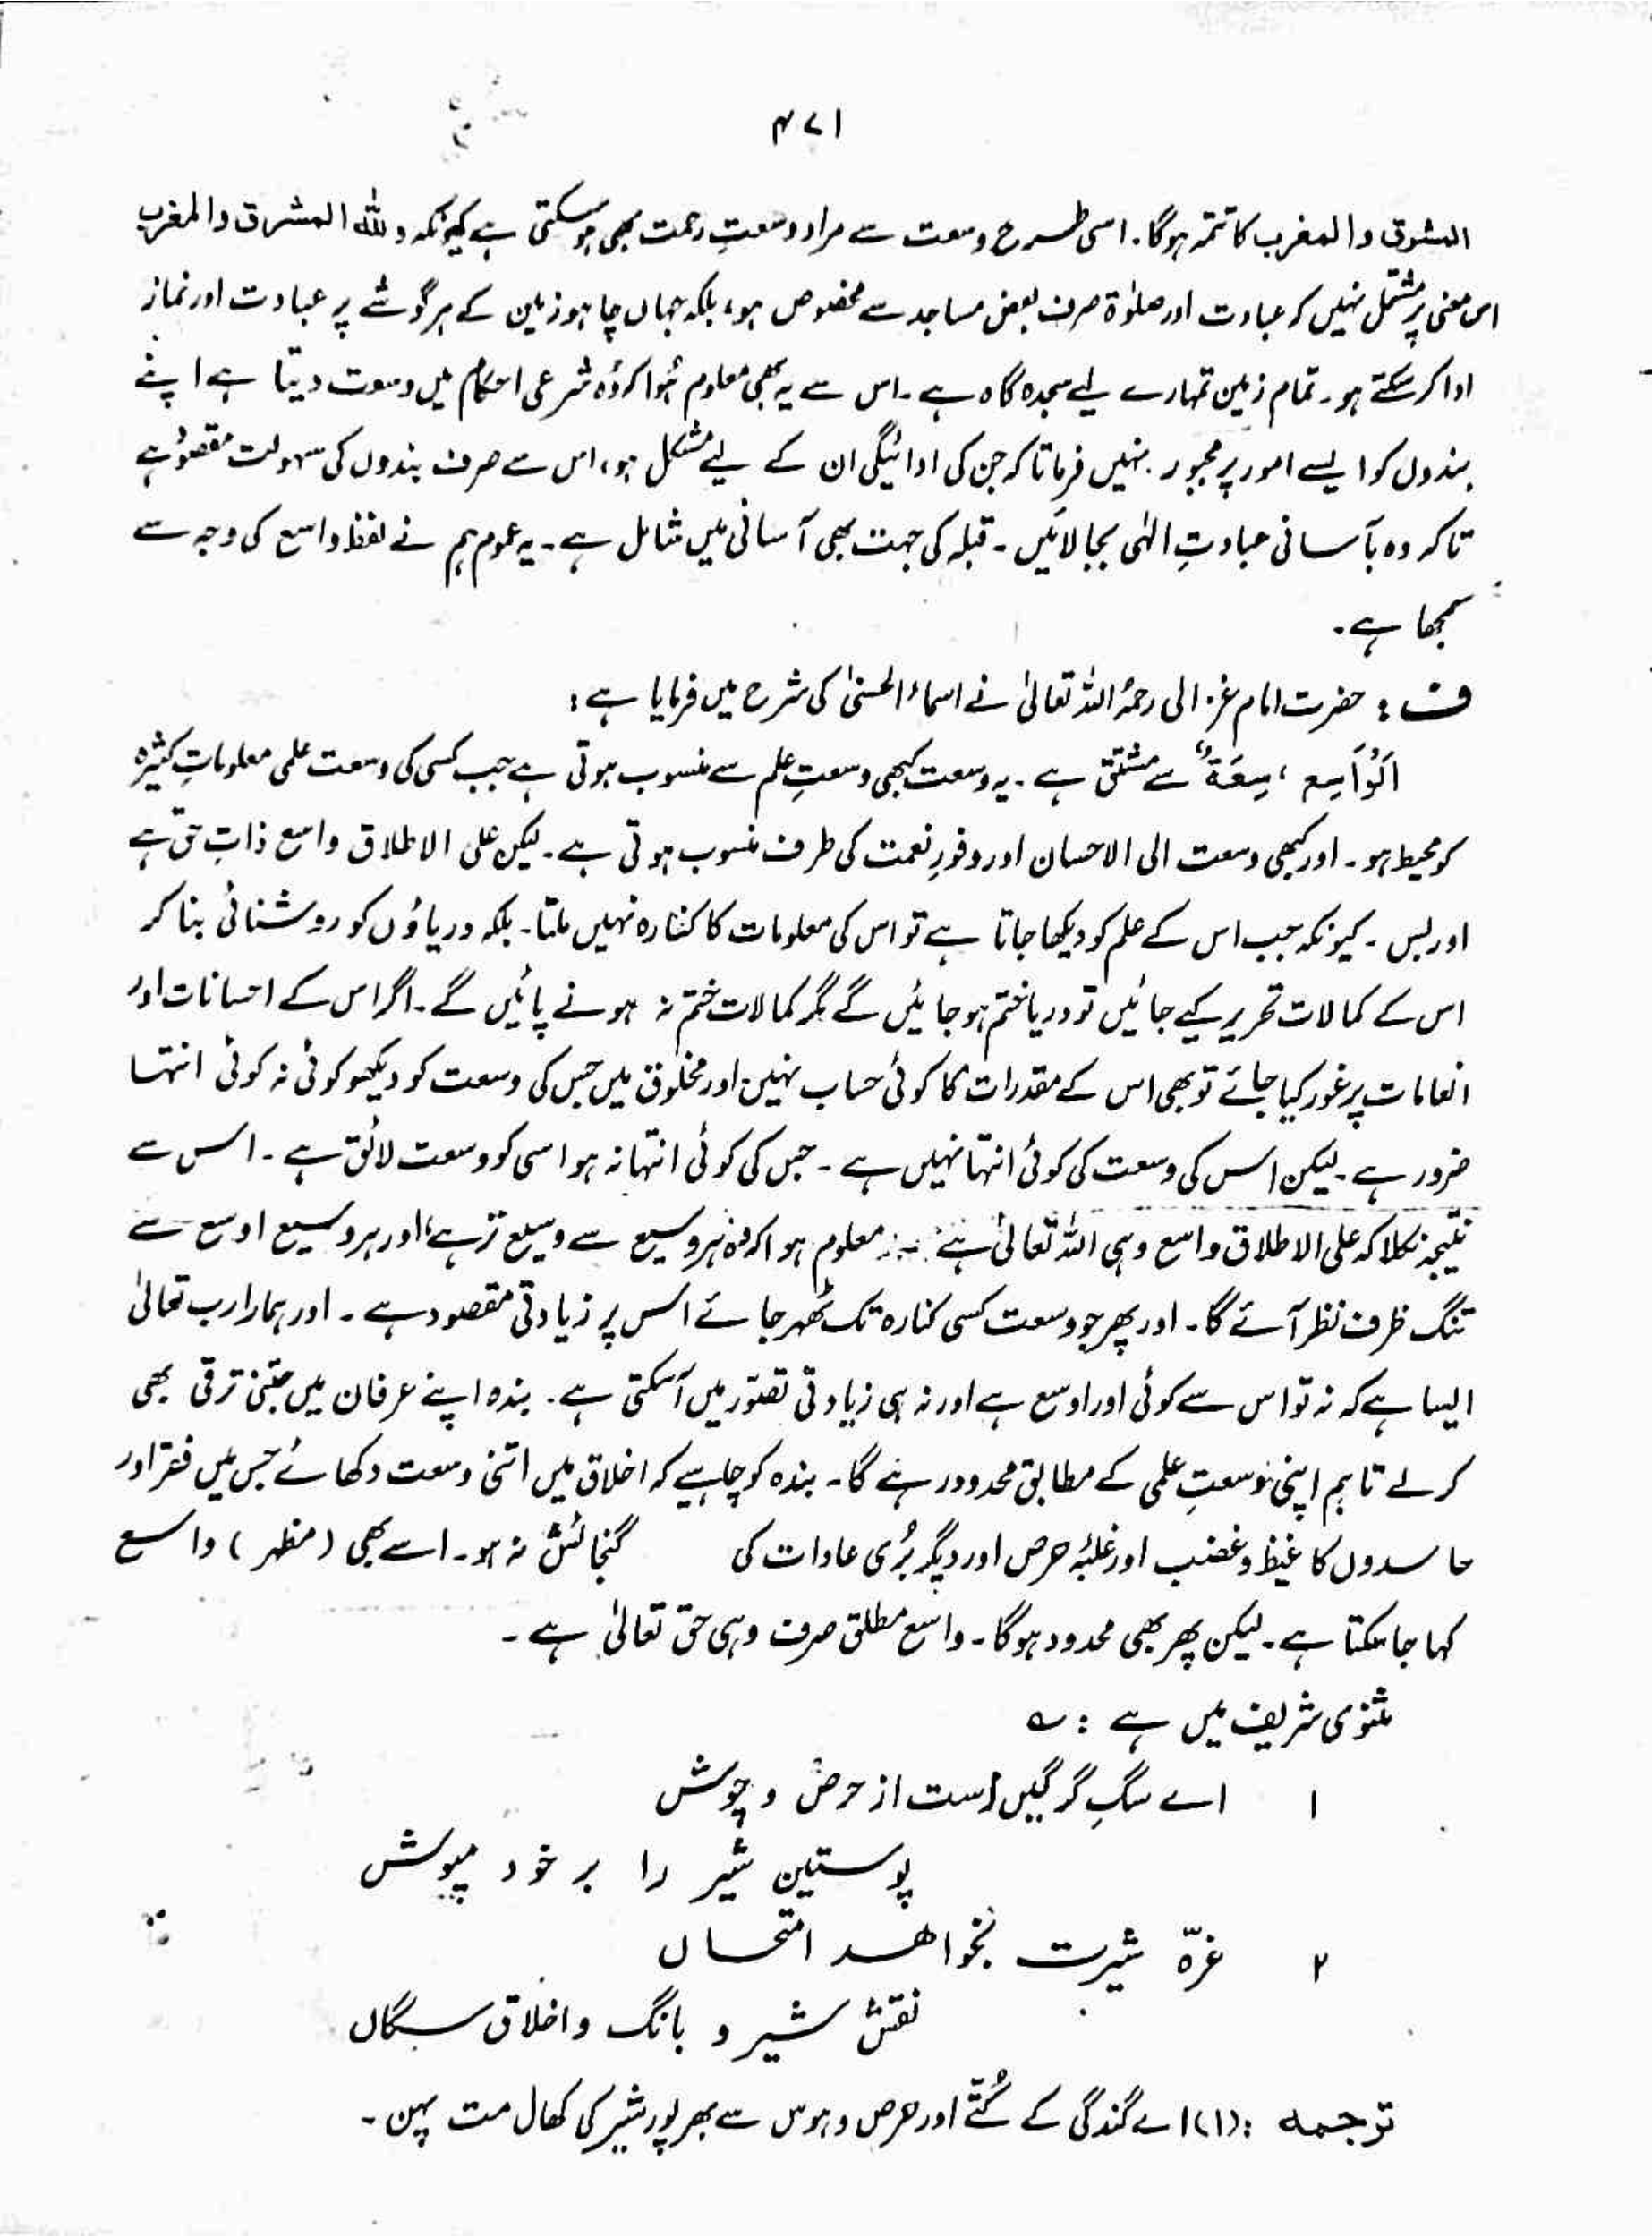 ۴۷۱
المشرق والمغرب کا تتمہ ہوگا۔ اسی طرح وسعت سے مراد وسعتِ رحمت بھی ہوسکتی ہے کیونکہ وللہ المشرق والمغرب
اس معنی پر مشتمل نہیں کہ عبادت اور صلوٰۃ صرف بعض مساجد سے مخصوص ہو، بلکہ جہاں چاہو زمین کے ہر گوشے پر عبادت اور نماز
ادا کرسکتے ہو۔ تمام زمین تمہارے لیے سجدہ گاہ ہے۔ اس سے یہ بھی معلوم ہُوا کہ وُہ شرعی احکام میں وسعت دیتا ہے اپنے
بندوں کو ایسے امور پر مجبور نہیں فرماتا کہ جن کی ادائیگی ان کے لیے مشکل ہو، اس سے صرف بندوں کی سہولت مقصوُد ہے
تاکہ وہ بآسانی عبادتِ الٰہی بجا لائیں۔ قبلہ کی جہت بھی آسانی میں شامل ہے۔ یہ عموم ہم نے لفظ واسع کی وجہ سے
سمجھا ہے۔
ف : حضرت امام غزالی رحمہُ اللہ تعالیٰ نے اسماءُ الحسنیٰ کی شرح میں فرمایا ہے :
اَلْوَاسِع ، سِعَۃٌ سے مشتق ہے۔ یہ وسعت کبھی وسعتِ علم سے منسوب ہوتی ہے جب کسی کی وسعت علمی معلوماتِ کثیرہ
کو محیط ہو۔ اور کبھی وسعت الی الاحسان اور وفورِ نعمت کی طرف منسوب ہوتی ہے۔ لیکن علی الاطلاق واسع ذاتِ حق ہے
اور بس۔ کیونکہ جب اس کے علم کو دیکھا جاتا ہے تو اس کی معلومات کا کنارہ نہیں ملتا۔ بلکہ دریاؤں کو روشنائی بنا کر
اس کے کمالات تحریر کیے جائیں تو دریا ختم ہو جائیں گے مگر کمالات ختم نہ ہونے پائیں گے۔ اگر اس کے احسانات اور
انعامات پر غور کیا جائے تو بھی اس کے مقدرات کا کوئی حساب نہیں اور مخلوق میں جس کی وسعت کو دیکھو کوئی نہ کوئی انتہا
ضرور ہے۔ لیکن اس کی وسعت کی کوئی انتہا نہیں ہے۔ جس کی کوئی انتہا نہ ہو اسی کو وسعت لائق ہے۔ اس سے
نتیجہ نکلا کہ علی الاطلاق واسع وہی اللہ تعالیٰ ہے معلوم ہوا کہ وُہ ہر وسیع سے وسیع تر ہے، اور ہر وسیع اوسع سے
تنگ ظرف نظر آئے گا۔ اور پھر جو وسعت کسی کنارہ تک ٹھہر جائے اس پر زیادتی مقصود ہے۔ اور ہمارا رب تعالیٰ
ایسا ہے کہ نہ تو اس سے کوئی اور اوسع ہے اور نہ ہی زیادتی تصوّر میں آسکتی ہے۔ بندہ اپنے عرفان میں جتنی ترقی بھی
کر لے تاہم اپنی وسعتِ علمی کے مطابق محدود رہے گا۔ بندہ کو چاہیے کہ اخلاق میں اتنی وسعت دکھائے جس میں فقر اور
حاسدوں کا غیظ و غضب اور غلبۂ حرص اور دیگر بُری عادات کی گنجائش نہ ہو۔ اسے بھی (مظہر) واسع
کہا جاسکتا ہے۔ لیکن پھر بھی محدود ہوگا۔ واسع مطلق صرف وہی حق تعالیٰ ہے۔
مثنوی شریف میں ہے : ؎
۱ اے سگِ گرگیں است از حرص و جوش
پوستین شیر را بر خود مپوش
۲ غرّہ شیرت نخواھد امتحاں
نقش شیر و بانگ و اخلاق سگاں
ترجمہ : (۱) اے گندگی کے کُتّے اور حرص و ہوس سے بھر پور شیر کی کھال مت پہن۔